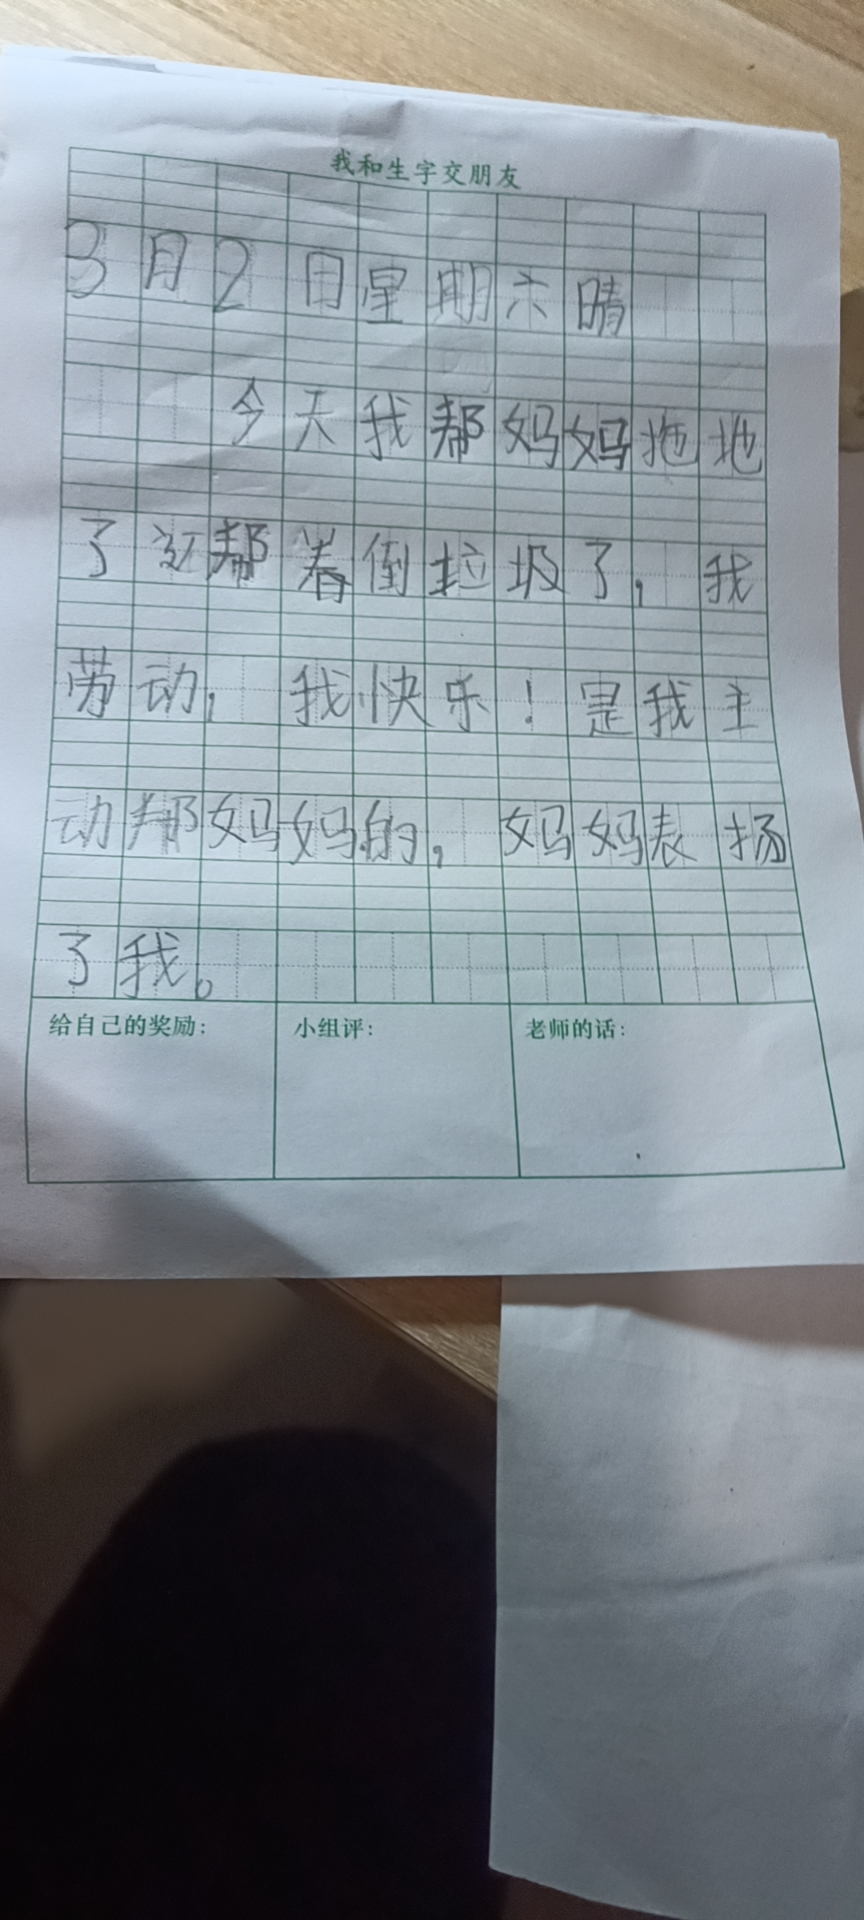 我和生字交朋友
3月2日星期六晴
今天我帮妈妈拖地
了还帮着倒垃圾了，我
劳动，我快乐！是我主
动帮妈妈的，妈妈表扬
了我。
给自己的奖励：
小组评：
老师的话：